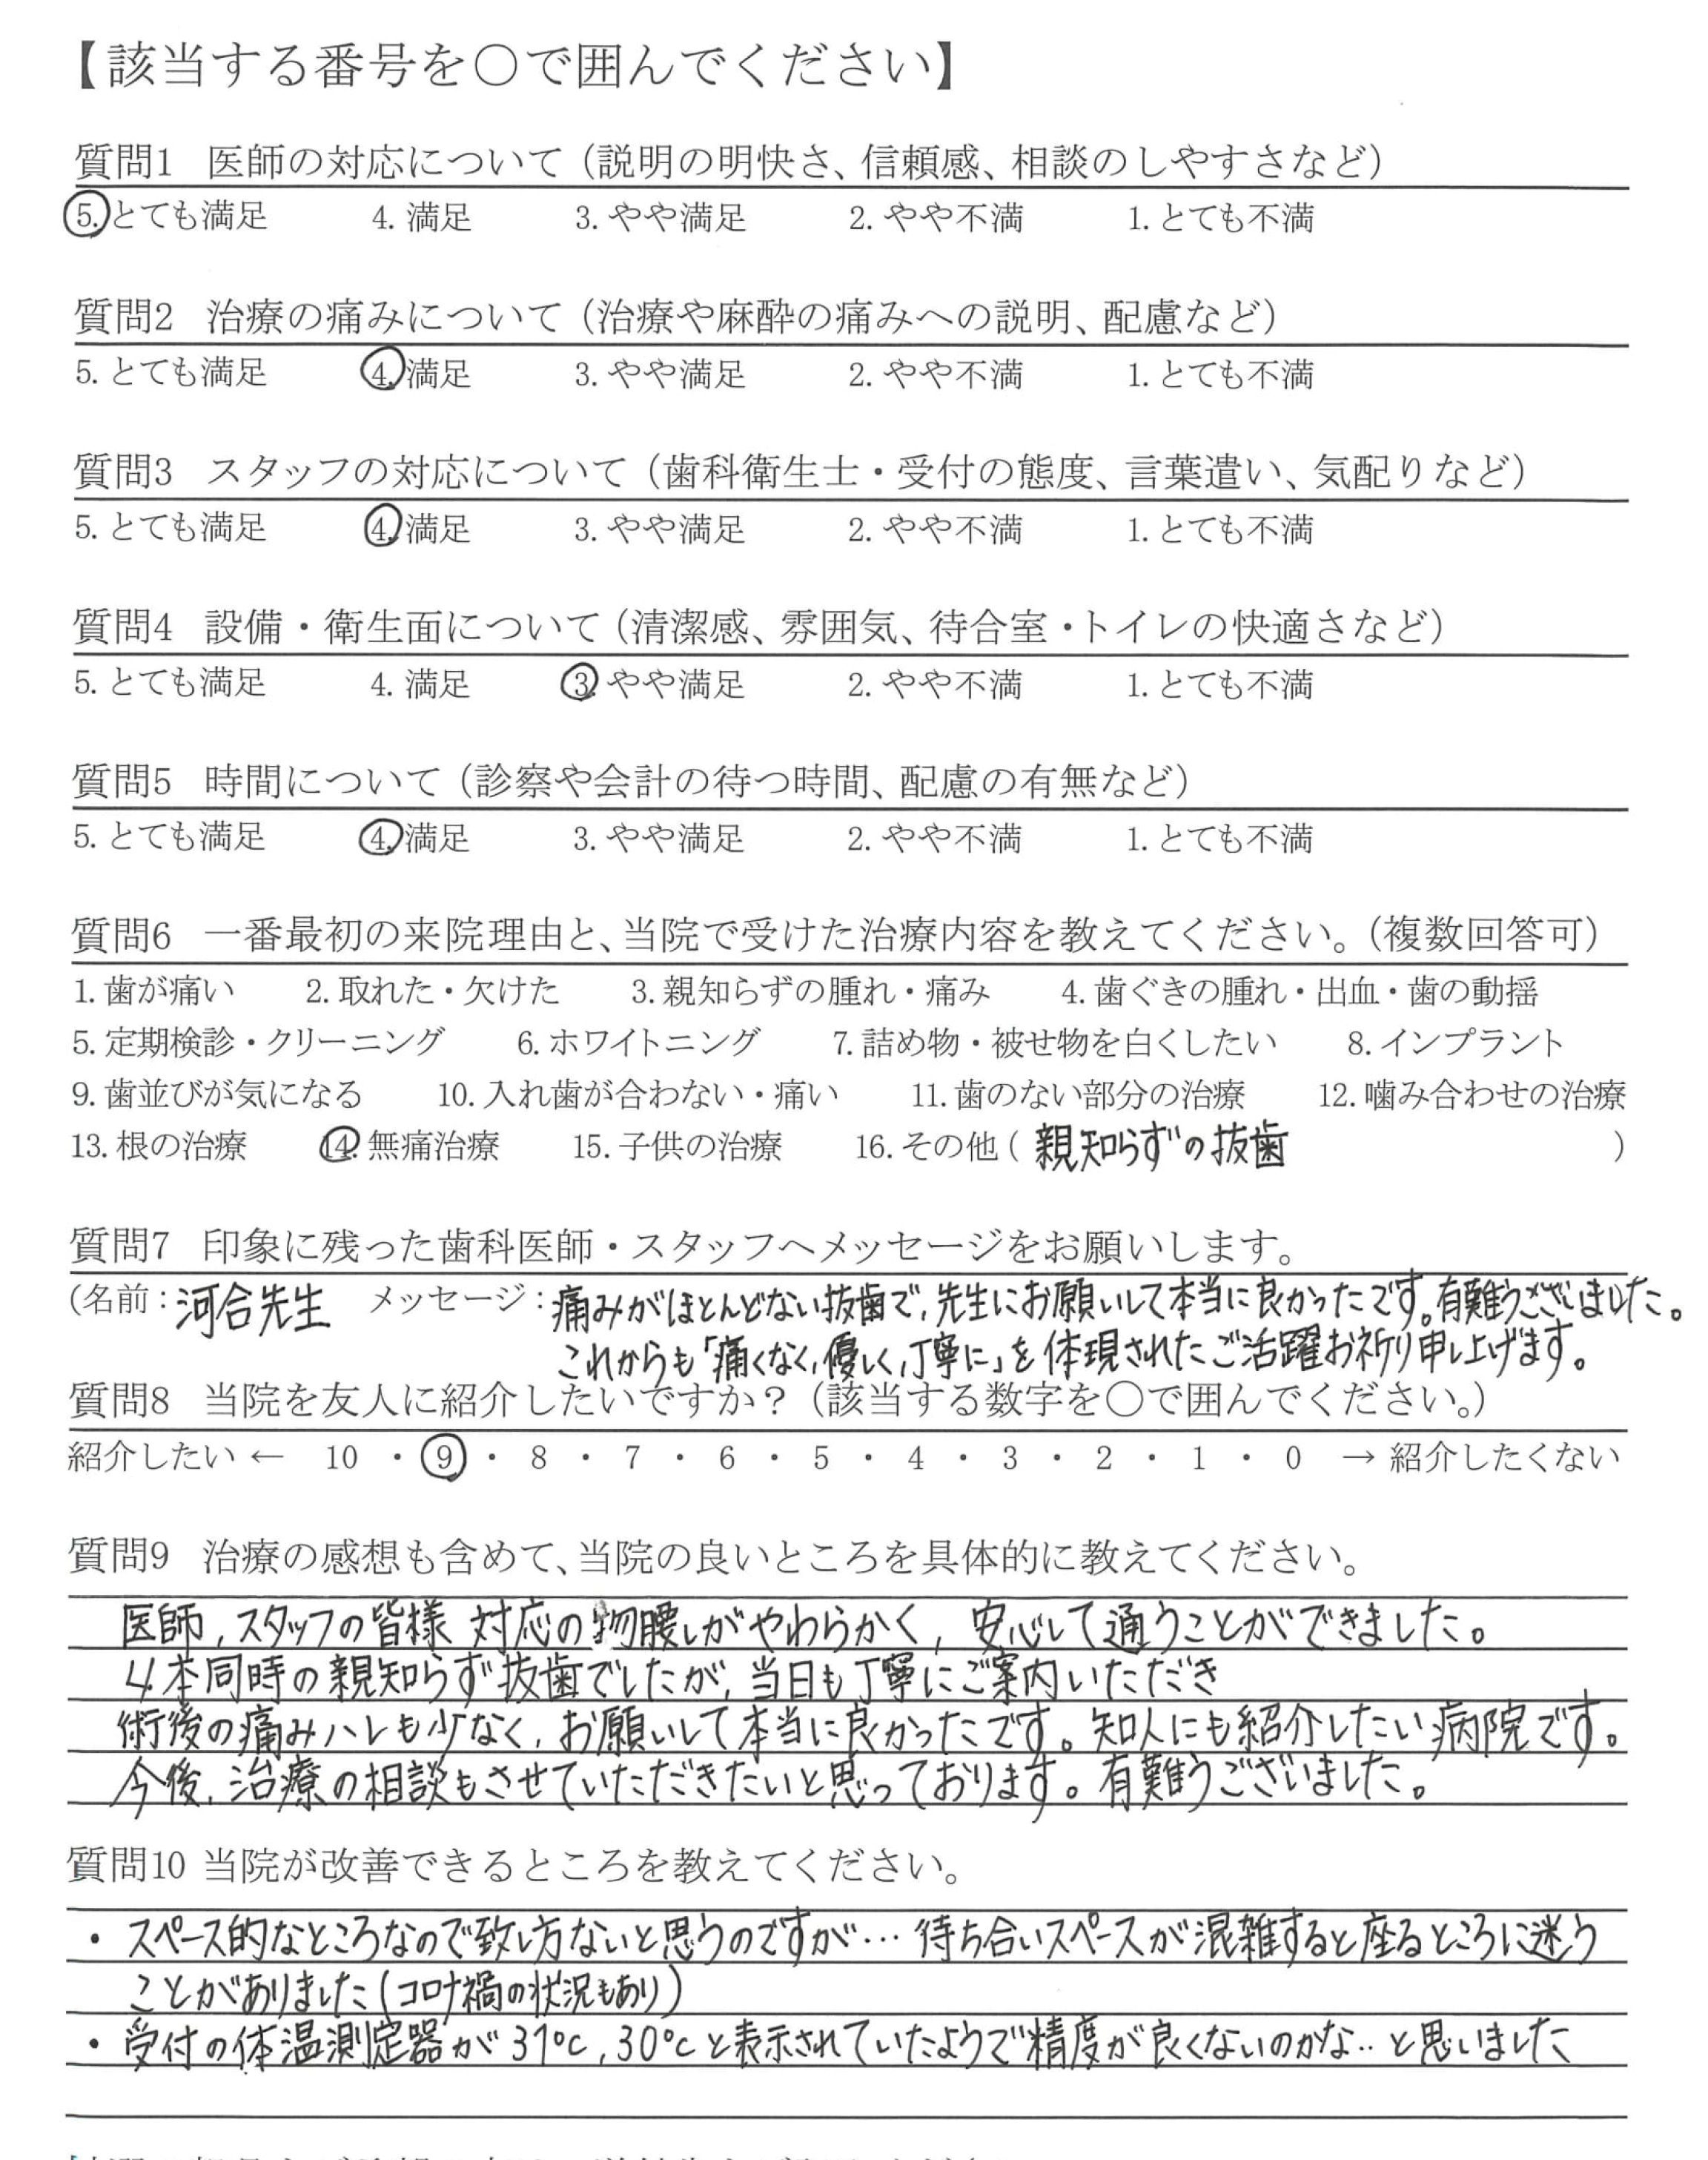 【該当する番号を〇で囲んでください】
質問1 医師の対応について（説明の明快さ、信頼感、相談のしやすさなど）
5.とても満足 4.満足 3.やや満足 2.やや不満 1.とても不満
質問2 治療の痛みについて（治療や麻酔の痛みへの説明、配慮など）
5.とても満足 4.満足 3.やや満足 2.やや不満 1.とても不満
質問3 スタッフの対応について（歯科衛生士・受付の態度、言葉遣い、気配りなど）
5.とても満足 4.満足 3.やや満足 2.やや不満 1.とても不満
質問4 設備・衛生面について（清潔感、雰囲気、待合室・トイレの快適さなど）
5.とても満足 4.満足 3.やや満足 2.やや不満 1.とても不満
質問5 時間について（診察や会計の待つ時間、配慮の有無など）
5.とても満足 4.満足 3.やや満足 2.やや不満 1.とても不満
質問6 一番最初の来院理由と、当院で受けた治療内容を教えてください。（複数回答可）
1.歯が痛い 2.取れた・欠けた 3.親知らずの腫れ・痛み 4.歯ぐきの腫れ・出血・歯の動揺
5.定期検診・クリーニング 6.ホワイトニング 7.詰め物・被せ物を白くしたい 8.インプラント
9.歯並びが気になる 10.入れ歯が合わない・痛い 11.歯のない部分の治療 12.噛み合わせの治療
13.根の治療 14.無痛治療 15.子供の治療 16.その他（親知らずの抜歯）
質問7 印象に残った歯科医師・スタッフへメッセージをお願いします。
（名前：河合先生 メッセージ：痛みがほとんどない抜歯で、先生にお願いして本当に良かったです。有難うございました。
これからも「痛くなく、優しく、丁寧に」を体現されたご活躍お祈り申し上げます。
質問8 当院を友人に紹介したいですか？（該当する数字を〇で囲んでください。）
紹介したい ← 10 ・ 9 ・ 8 ・ 7 ・ 6 ・ 5 ・ 4 ・ 3 ・ 2 ・ 1 ・ 0 → 紹介したくない
質問9 治療の感想も含めて、当院の良いところを具体的に教えてください。
医師,スタッフの皆様 対応の物腰しがやわらかく,安心して通うことができました。
4本同時の親知らず抜歯でしたが,当日も丁寧にご案内いただき
術後の痛みハレも少なく,お願いして本当に良かったです。知人にも紹介したい病院です。
今後,治療の相談もさせていただきたいと思っております。有難うございました。
質問10 当院が改善できるところを教えてください。
・スペース的なところなので致し方ないと思うのですが…待ち合いスペースが混雑すると座るところに迷う
ことがありました（コロナ禍の状況もあり）
・受付の体温測定器が31℃,30℃と表示されていたようで精度が良くないのかな‥と思いました